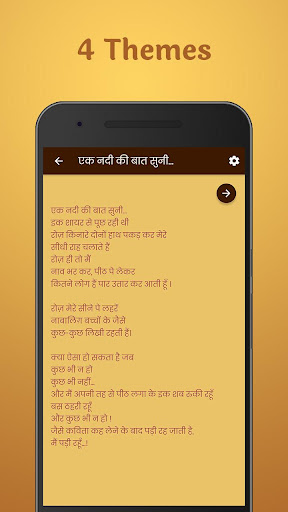 4 Themes
एक नदी की बात सुनी...
एक नदी की बात सुनी...
इक शायर से पूछ रही थी
रोज़ किनारे दोनों हाथ पकड़ कर मेरे
सीधी राह चलाते हैं
रोज़ ही तो मैं
नाव भर कर, पीठ पे लेकर
कितने लोग हैं पार उतार कर आती हूँ ।
रोज़ मेरे सीने पे लहरें
नाबालिग़ बच्चों के जैसे
कुछ-कुछ लिखी रहती हैं।
क्या ऐसा हो सकता है जब
कुछ भी न हो
कुछ भी नहीं...
और मैं अपनी तह से पीठ लगा के इक शब रुकी रहूँ
बस ठहरी रहूँ
और कुछ भी न हो !
जैसे कविता कह लेने के बाद पड़ी रह जाती है,
मैं पड़ी रहूँ...!